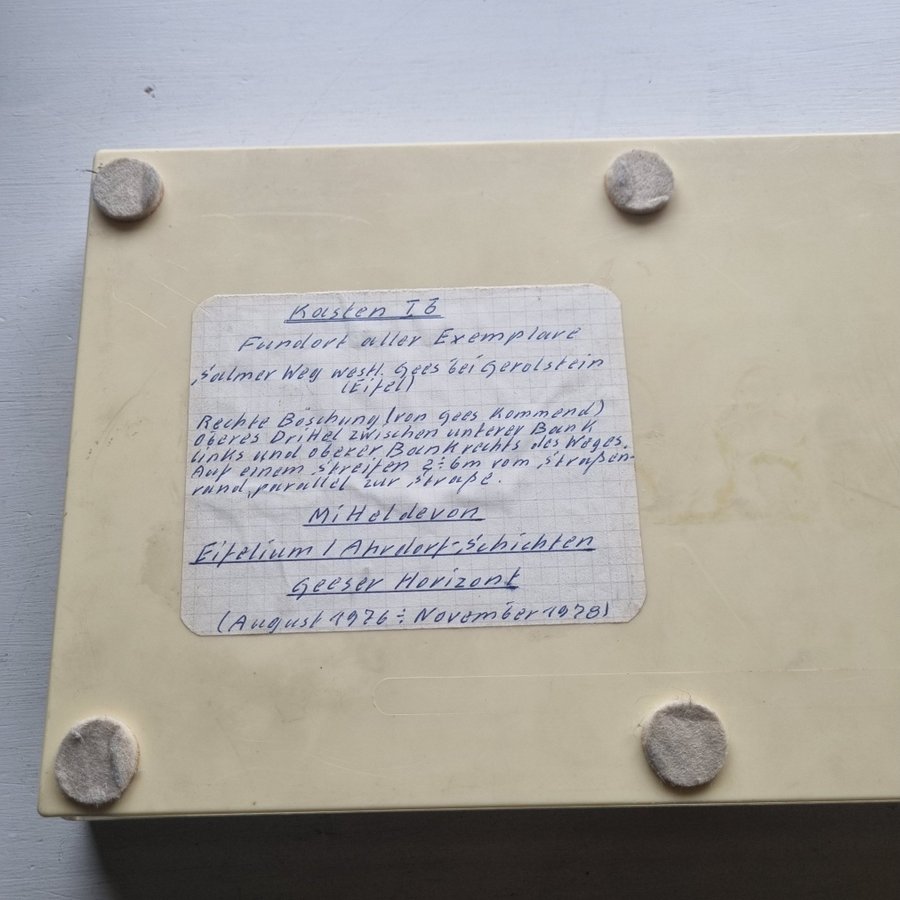 Kasten I6
Fundort aller Exemplare
Salmer Weg westl. Gees bei Gerolstein
(Eifel)
Rechte Böschung (von Gees kommend)
oberes Drittel zwischen unterer Bank
links und oberer Bank rechts des Weges.
Auf einem Streifen 2÷6m vom Straßen-
rand, parallel zur Straße.
Mitteldevon
Eifelium / Ahrdorf-Schichten
Geeser Horizont
(August 1976 ÷ November 1978)